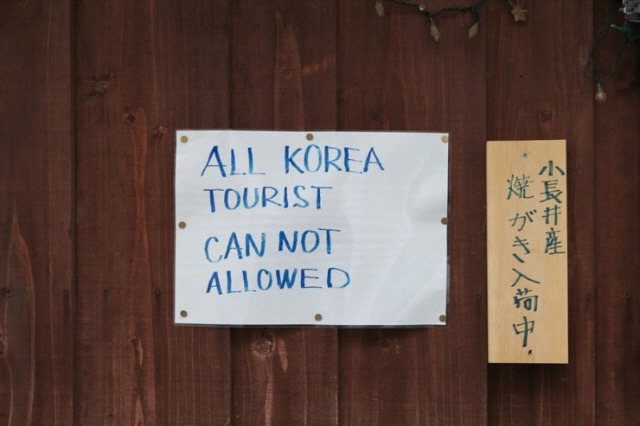 ALL KOREA
TOURIST
CAN NOT
ALLOWED
小長井産
焼がき入荷中